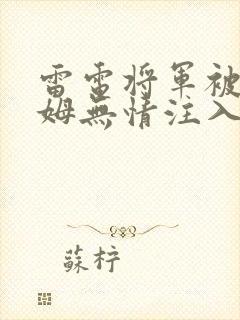 雷電将軍被
姆無情注入
蘇梓